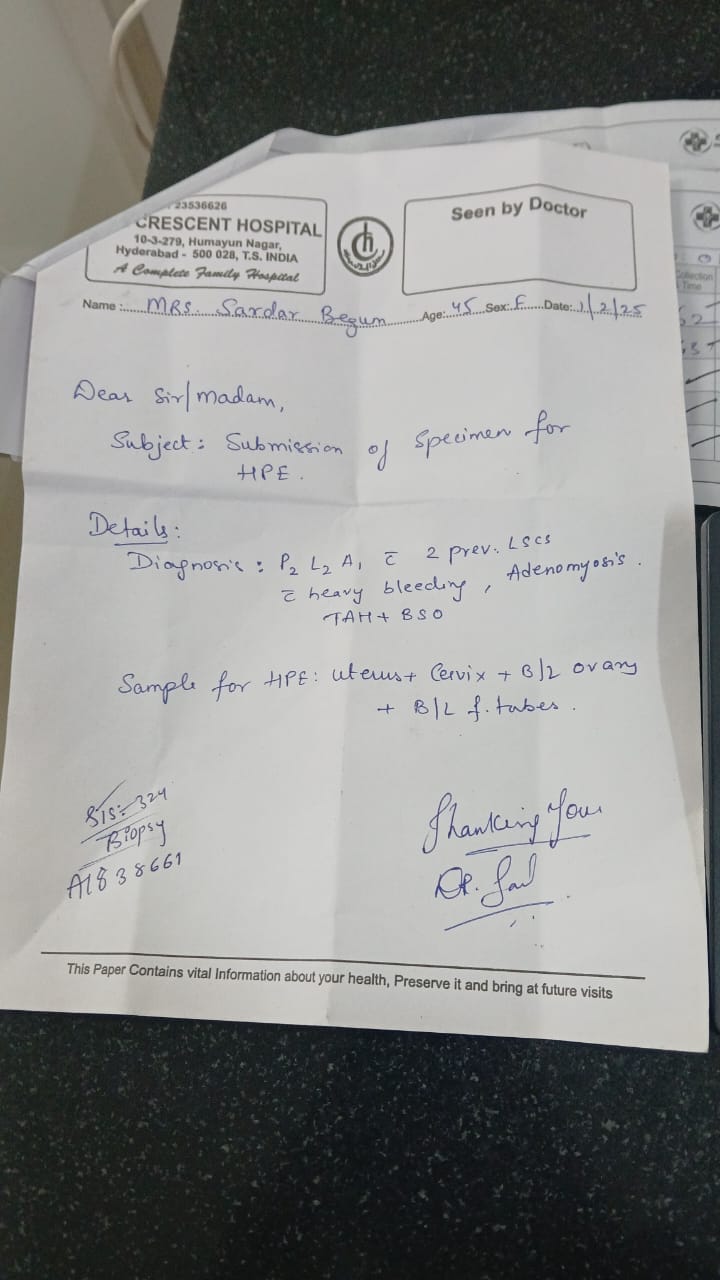 23536626
CRESCENT HOSPITAL
10-3-279, Humayun Nagar,
Hyderabad - 500 028, T.S. INDIA
A Complete Family Hospital
ch
Seen by Doctor
Name :...... MRS. Sardar Begum ......Age:..45..Sex:.F....Date:..1/2/25
Dear Sir/madam,
Subject : Submission of Specimen for
HPE.
Details:
Diagnosis : P2 L2 A1 c̄ 2 prev. LSCS
c̄ heavy bleeding, Adenomyosis.
TAH + BSO
Sample for HPE: uterus + Cervix + B/L ovary
+ B/L f. tubes.
SIS: 324
Biopsy
A1838661
Thanking You
DR.
This Paper Contains vital Information about your health, Preserve it and bring at future visits
Collection
Time